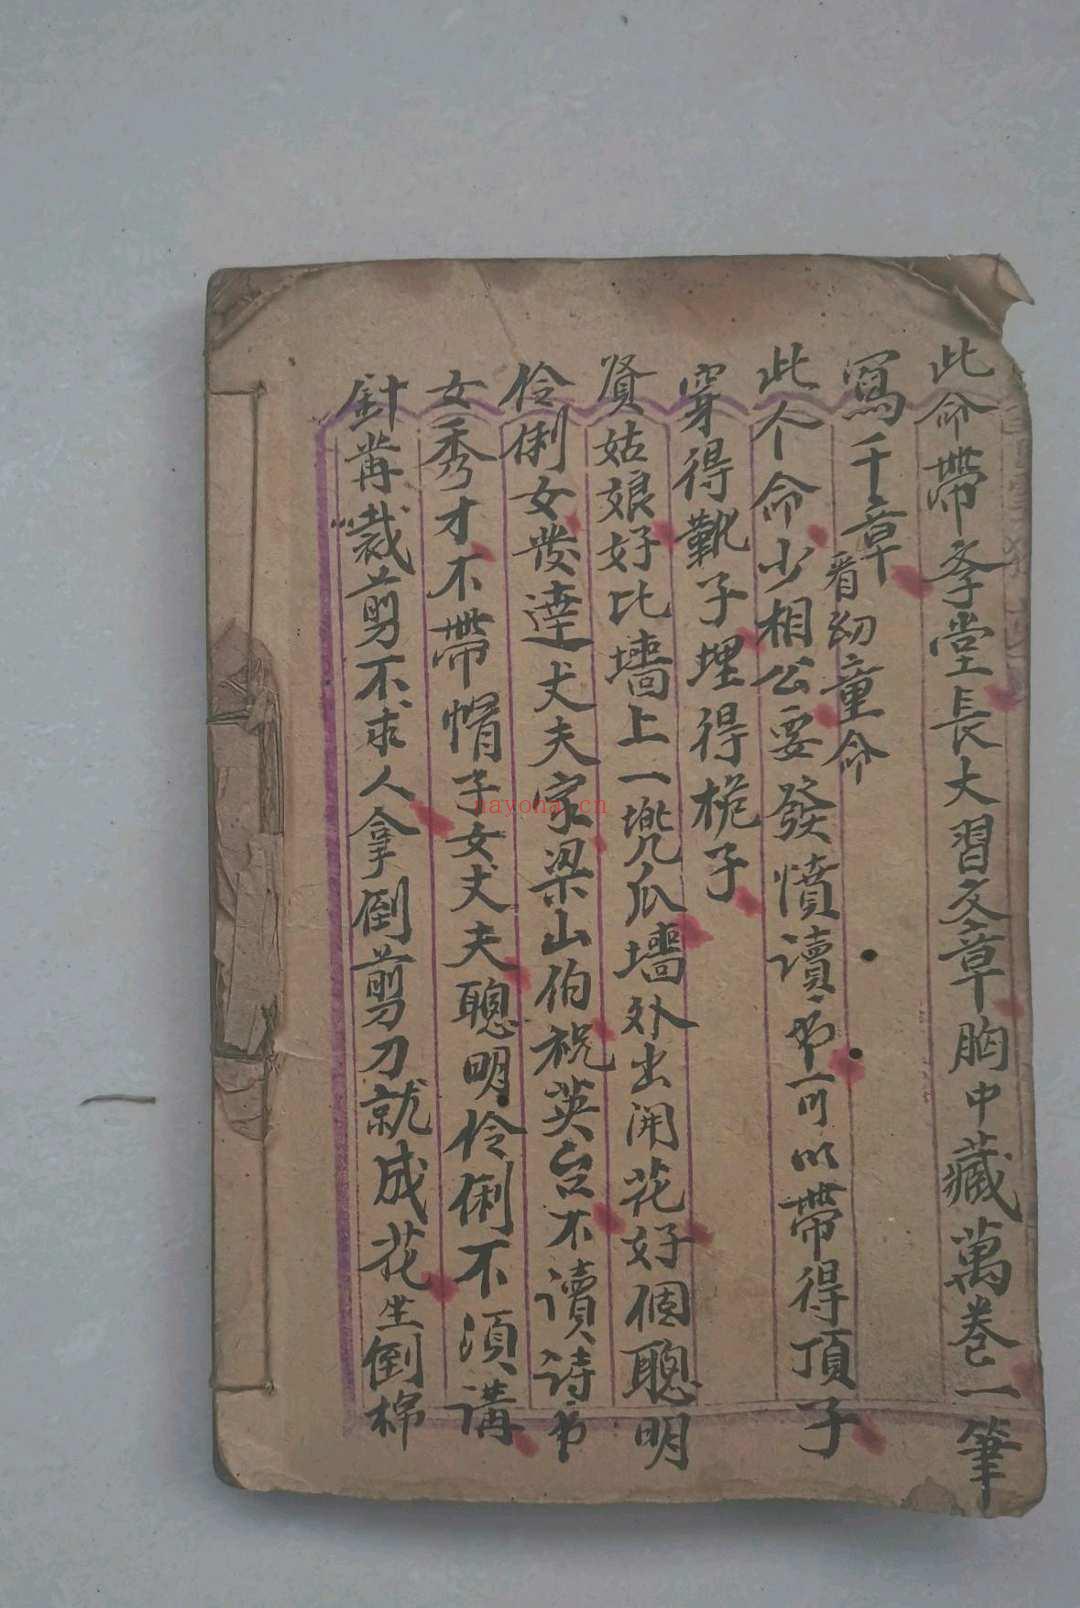 此命帶孝堂長大習文章胸中藏萬卷一筆
寫千章
看幼童命
此个命少相公要發憤讀书可以帶得頂子
穿得靴子埋得桅子
賢姑娘好比墻上一蔸瓜墻外出開花好個聰明
伶俐女發達丈夫家梁山伯祝英台不讀詩书
女秀才不帶帽子女丈夫聰明伶俐不須講
針黹裁剪不求人拿倒剪刀就成花生倒棉
nayona.cn